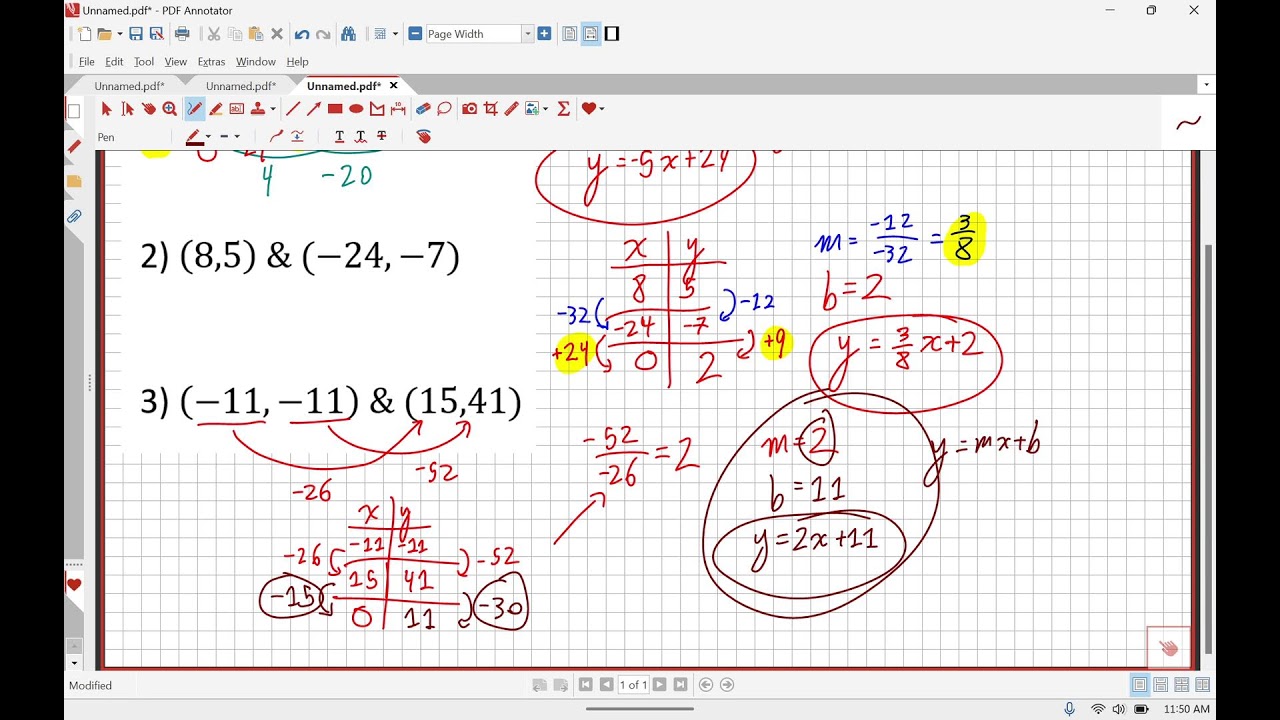 Unnamed.pdf* - PDF Annotator
Page Width
File Edit Tool View Extras Window Help
Unnamed.pdf* Unnamed.pdf* Unnamed.pdf*
Pen
4 -20
y=-5x+24
2) (8,5) & (−24,−7)
x y
8 5
-32 -12
-24 -7
+24 +9
0 2
m = -12/-32 = 3/8
b=2
y = 3/8 x+2
3) (−11,−11) & (15,41)
-26 -52
x y
-11 -11
-26 -52
15 41
-15 -30
0 11
-52/-26 = 2
m=2
b=11
y=2x+11
y=mx+b
Modified
1 of 1
11:50 AM